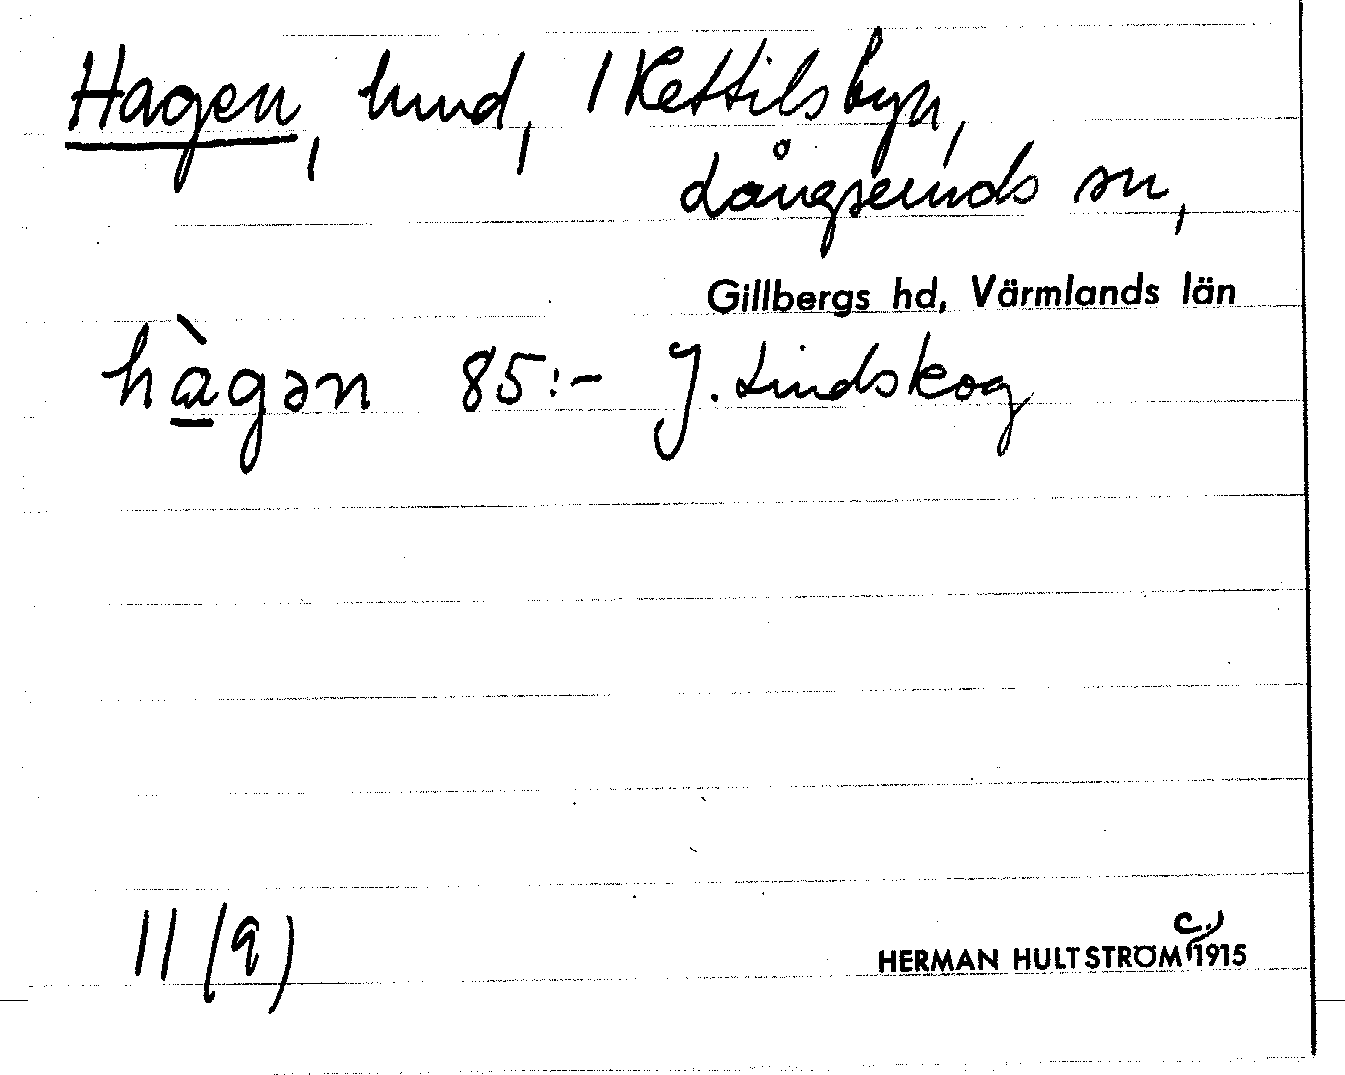 Hagen, hmd, 1 Kettilsbyn,
Långseruds sn,
Gillbergs hd, Värmlands län
hàgən 85:- J. Lindskog
11 (9)
HERMAN HULTSTRÖM (c.) 1915